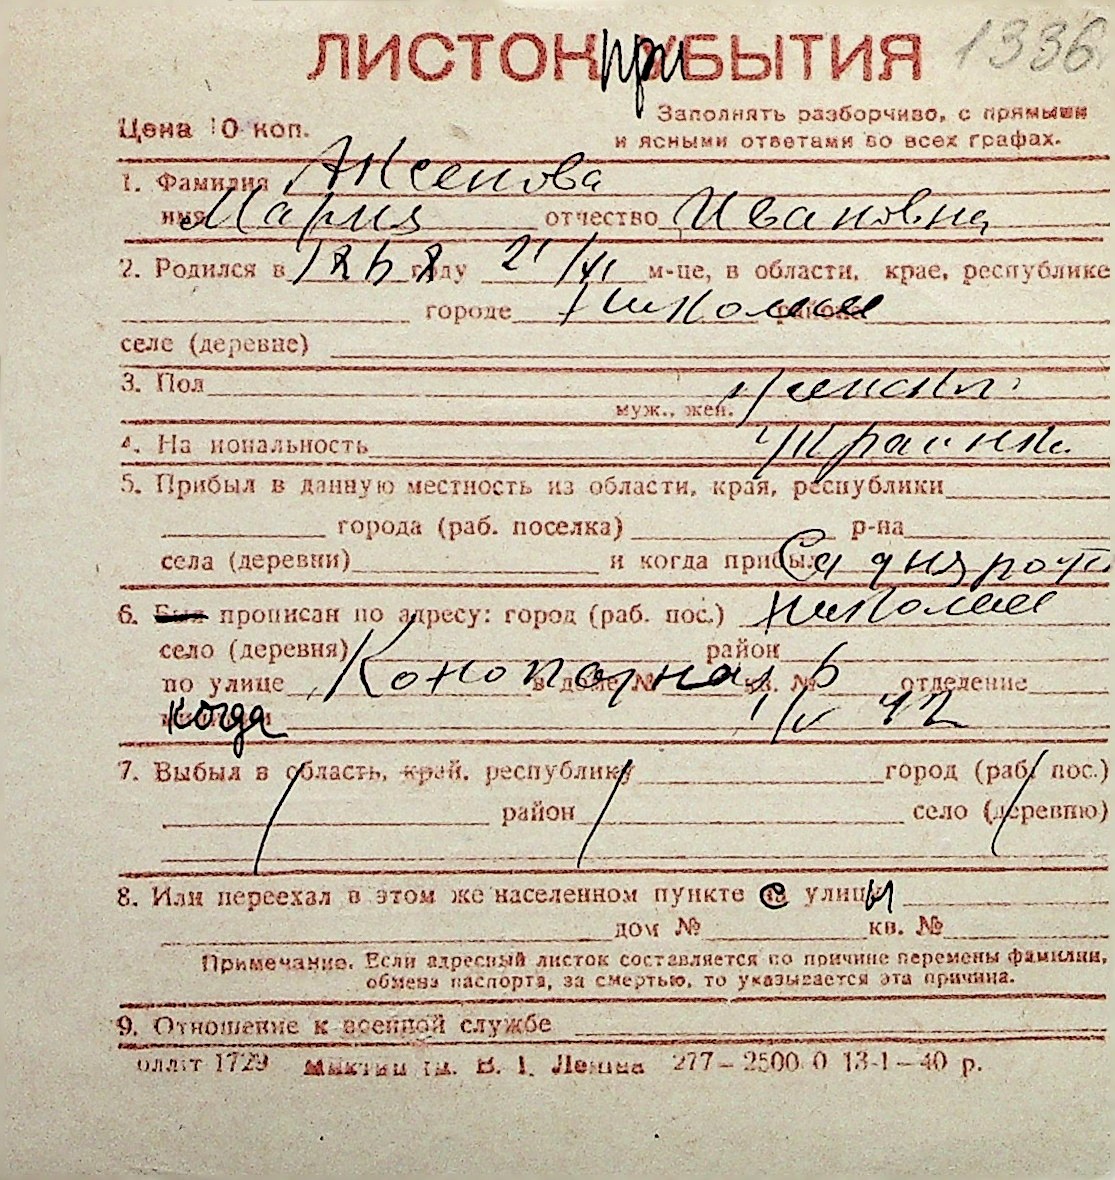 ЛИСТОК ПРИБЫТИЯ 1336
Цена 10 коп.
Заполнять разборчиво, с прямыми
и ясными ответами во всех графах.
1. Фамилия Аксенова
имя Мария отчество Ивановна
2. Родился в году 21/VI м-це, в области, крае, республике
городе района
селе (деревне)
3. Пол
муж., жен.
4. Национальность Украинка
5. Прибыл в данную местность из области, края, республики
города (раб. поселка) р-на
села (деревни) и когда прибыл Са дня рож.
6. Был прописан по адресу: город (раб. пос.)
село (деревня) район
по улице в доме № кв. № 6 отделение
когда 1/V 42
7. Выбыл в область, край, республику город (раб. пос.)
район село (деревню)
8. Или переехал в этом же населенном пункте с улицы
дом № кв. №
Примечание. Если адресный листок составляется по причине перемены фамилии,
обмена паспорта, за смертью, то указывается эта причина.
9. Отношение к военной службе
1729 В. І. Леніна 277—2500 0 13-1—40 р.